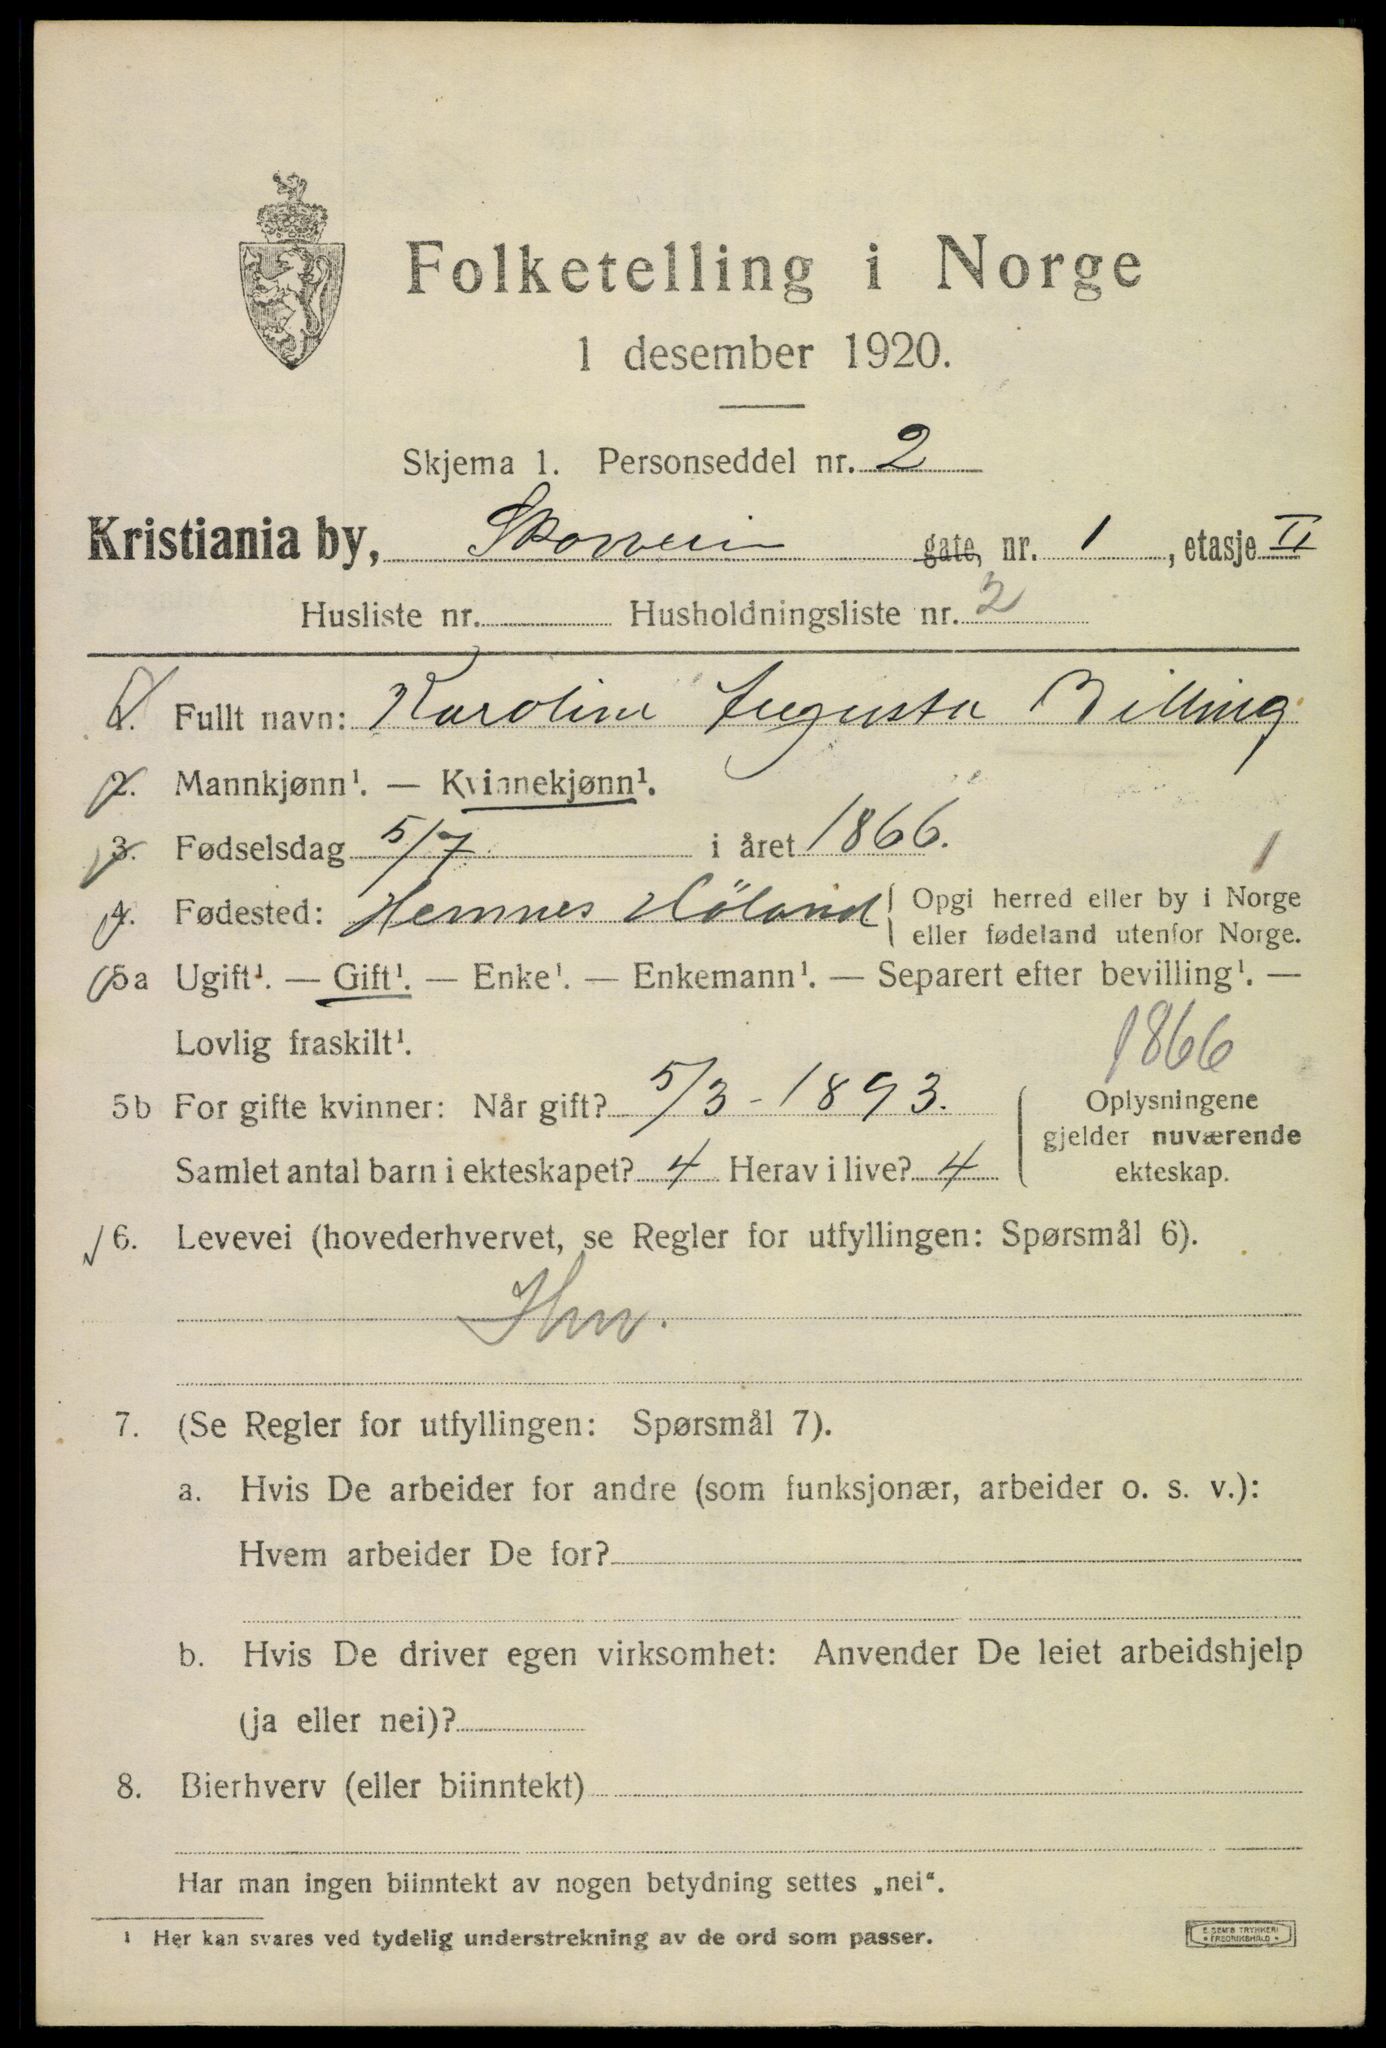 Folketelling i Norge
1 desember 1920.
Skjema 1. Personseddel nr. 2
Kristiania by, Skovvein gate, nr. 1, etasje II
Husliste nr. Husholdningsliste nr. 2
1. Fullt navn: Karoline Augusta Billing
2. Mannkjønn¹. — Kvinnekjønn¹.
3. Fødselsdag 5/7 i året 1866.
1
4. Fødested: Hemnes Höland Opgi herred eller by i Norge
eller fødeland utenfor Norge.
5a Ugift¹. — Gift¹. — Enke¹. — Enkemann¹. — Separert efter bevilling¹. —
Lovlig fraskilt¹.
1866
5b For gifte kvinner: Når gift? 5/3 - 1893. Oplysningene
gjelder nuværende
Samlet antal barn i ekteskapet? 4 Herav i live? 4 ekteskap.
6. Levevei (hovederhvervet, se Regler for utfyllingen: Spørsmål 6).
Hmv.
7. (Se Regler for utfyllingen: Spørsmål 7).
a. Hvis De arbeider for andre (som funksjonær, arbeider o. s. v.):
Hvem arbeider De for?
b. Hvis De driver egen virksomhet: Anvender De leiet arbeidshjelp
(ja eller nei)?
8. Bierhverv (eller biinntekt)
Har man ingen biinntekt av nogen betydning settes „nei“.
¹ Her kan svares ved tydelig understrekning av de ord som passer.
E. SEM'S TRYKKERI
FREDRIKSHALD